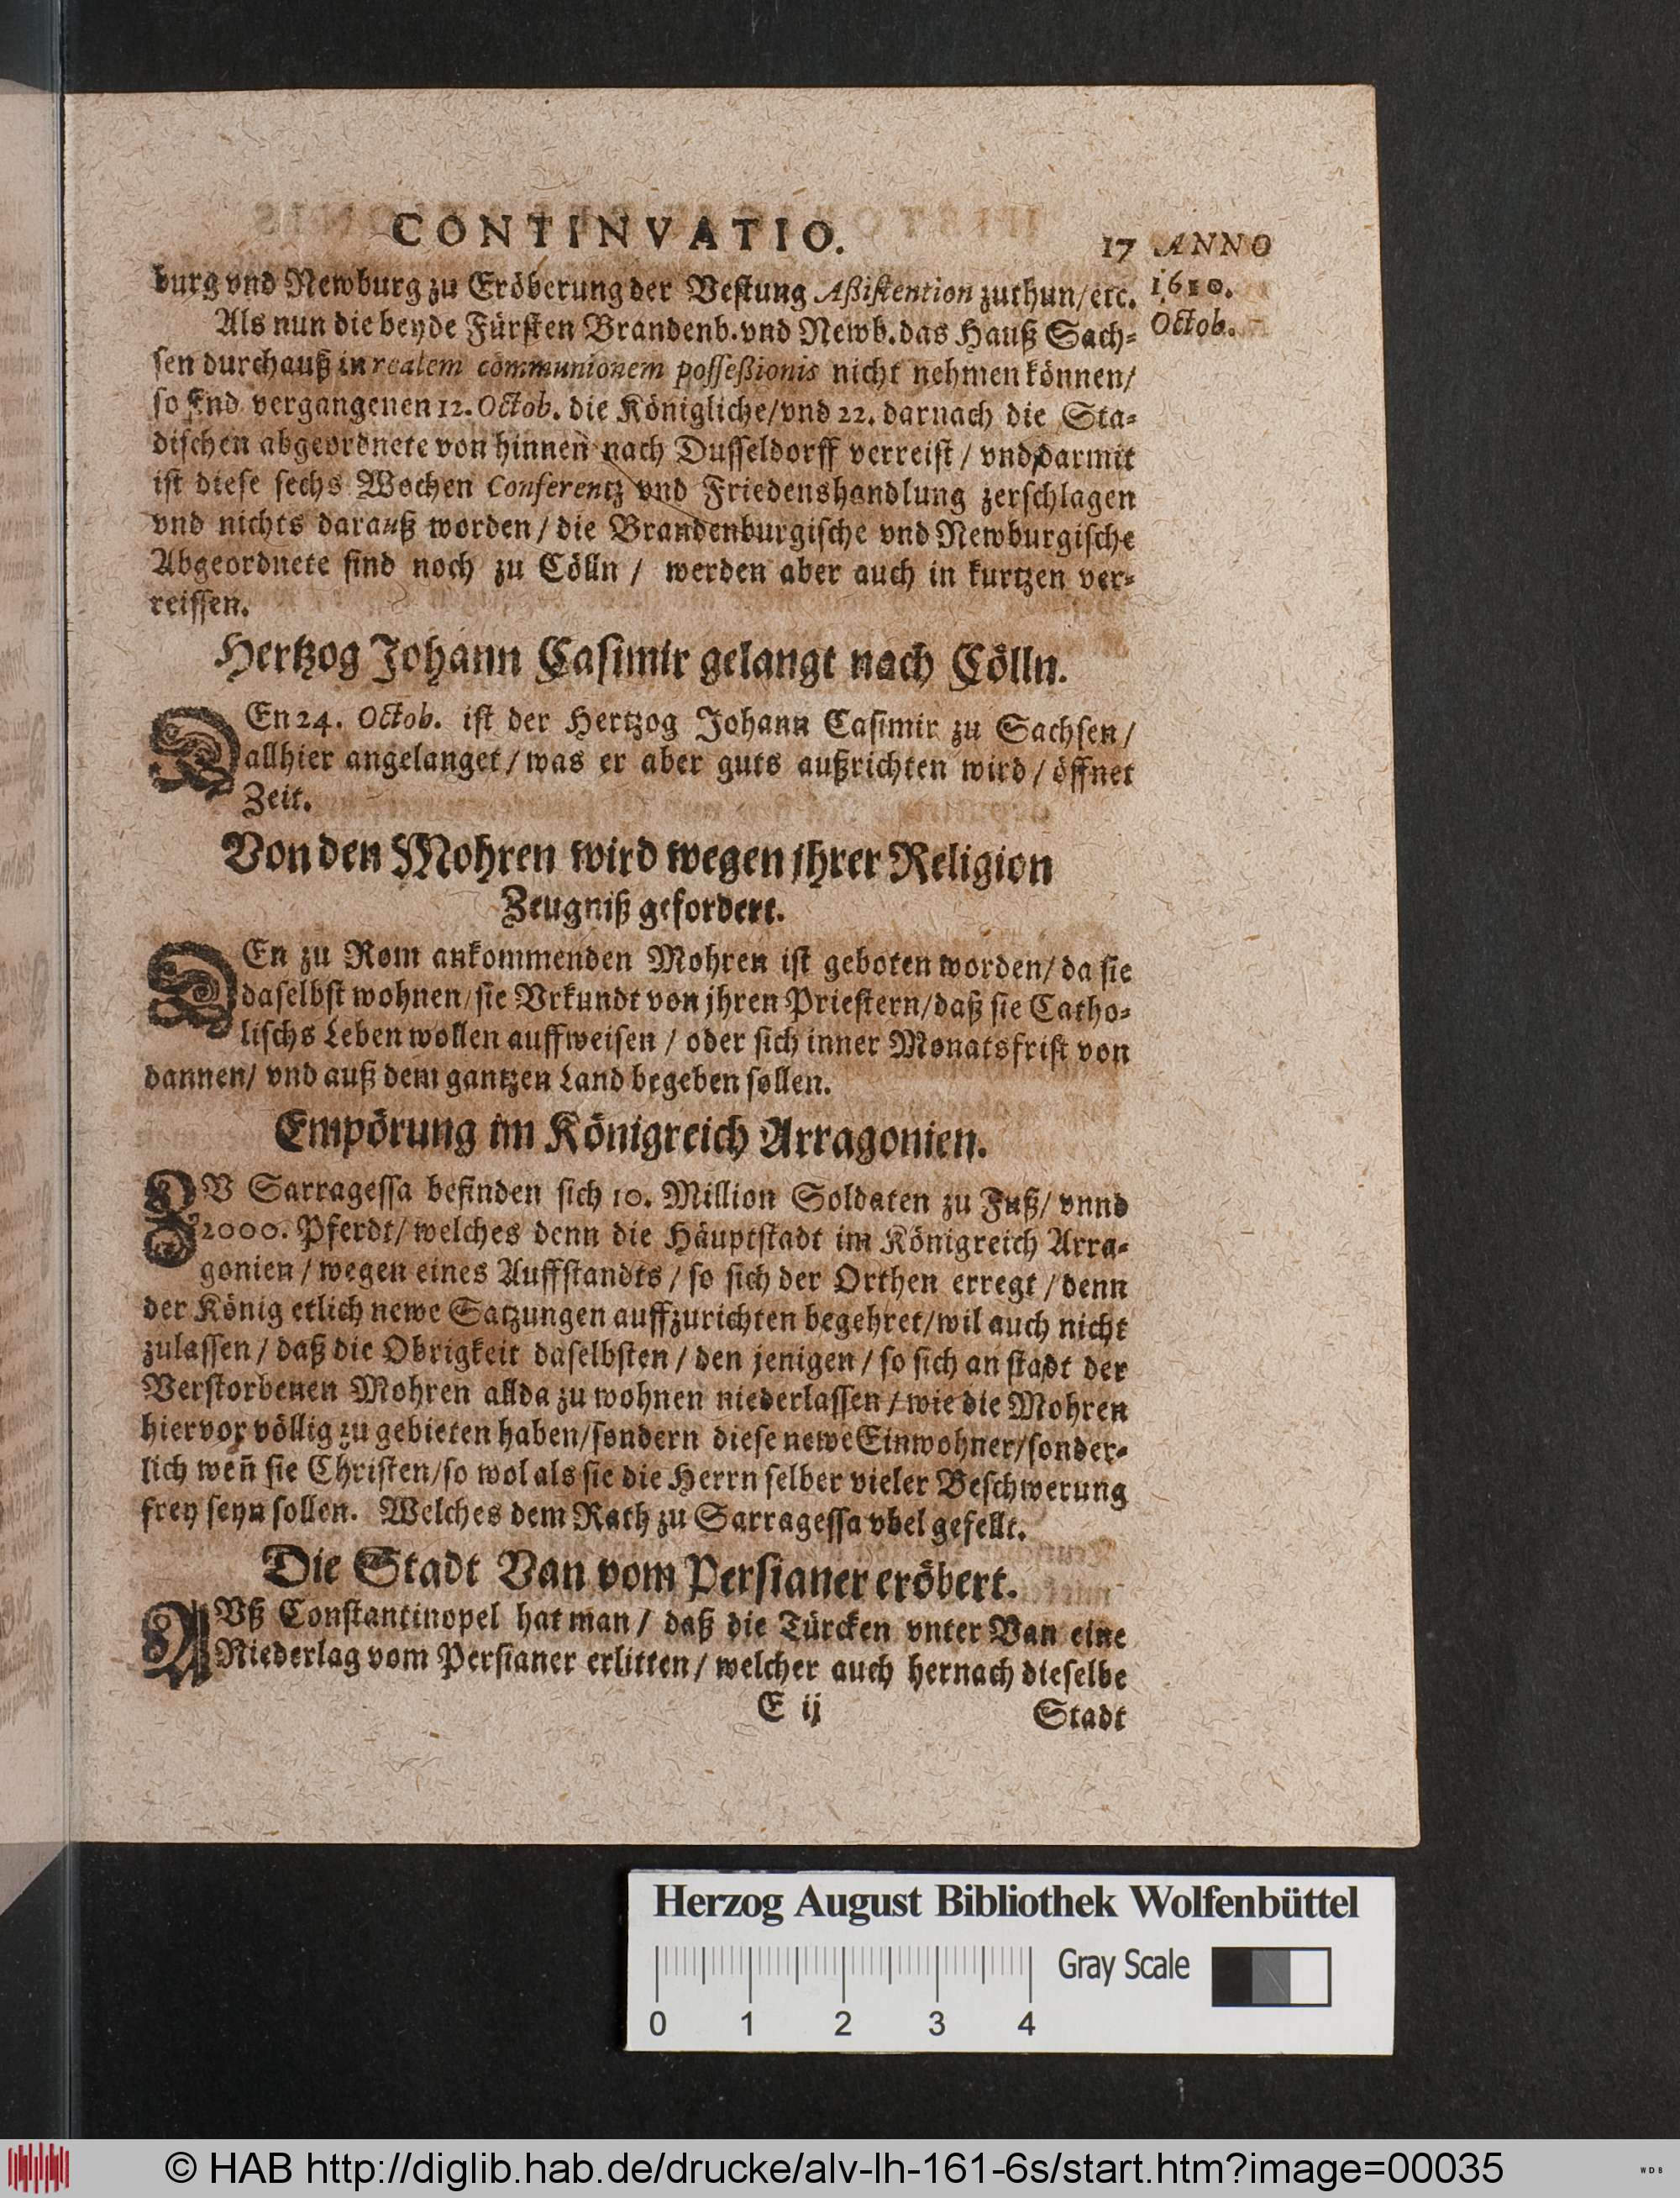 CONTINVATIO. 17 ANNO
burg vnd Newburg zu Eröberung der Vestung Aßistention zuthun/etc. 1610.
Als nun die beyde Fürsten Brandenb. vnd Newb. das Hauß Sach- Octob.
sen durchauß in realem communionem possesßionis nicht nehmen können/
so snd vergangenen 12. Octob. die Königliche/vnd 22. darnach die Sta-
dischen abgeordnete von hinnen nach Dusseldorff verreist / vnd darmit
ist diese sechs Wochen Conferentz vnd Friedenshandlung zerschlagen
vnd nichts darauß worden / die Brandenburgische vnd Newburgische
Abgeordnete sind noch zu Cölln / werden aber auch in kurtzen ver-
reissen.
Hertzog Johann Casimir gelangt nach Cölln.
DEn 24. Octob. ist der Hertzog Johann Casimir zu Sachsen /
allhier angelanget / was er aber guts außrichten wird / öffnet
Zeit.
Von den Mohren wird wegen jhrer Religion
Zeugniß gefordert.
DEn zu Rom ankommenden Mohren ist geboten worden/ da sie
daselbst wohnen/ sie Vrkundt von jhren Priestern/daß sie Catho-
lischs Leben wollen auffweisen / oder sich inner Monatsfrist von
dannen/ vnd auß dem gantzen Land begeben sollen.
Empörung im Königreich Arragonien.
ZV Sarragessa befinden sich 10. Million Soldaten zu Fuß/ vnnd
2000. Pferdt/ welches denn die Häuptstadt im Königreich Arra-
gonien / wegen eines Auffstandts / so sich der Orthen erregt / denn
der König etlich newe Satzungen auffzurichten begehret/wil auch nicht
zulassen / daß die Obrigkeit daselbsten / den jenigen / so sich an stadt der
Verstorbenen Mohren allda zu wohnen niederlassen / wie die Mohren
hiervor völlig zu gebieten haben/sondern diese newe Einwohner/sonder-
lich weñ sie Christen/so wol als sie die Herrn selber vieler Beschwerung
frey seyn sollen. Welches dem Rath zu Sarragessa vbel gefellt.
Die Stadt Van vom Persianer eröbert.
AVß Constantinopel hat man / daß die Türcken vnter Van eine
Niederlag vom Persianer erlitten / welcher auch hernach dieselbe
E ij Stadt
Herzog August Bibliothek Wolfenbüttel
Gray Scale
0 1 2 3 4
© HAB http://diglib.hab.de/drucke/alv-lh-161-6s/start.htm?image=00035
WDB